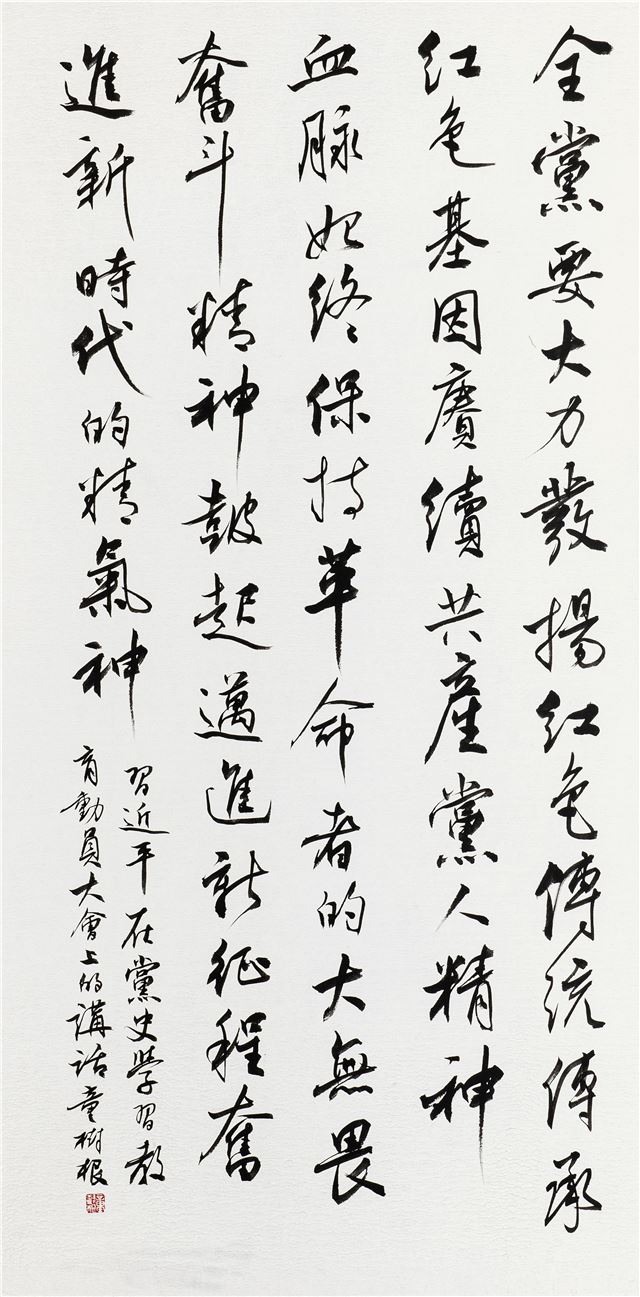 全黨要大力發揚紅色傳統傳承
紅色基因賡續共產黨人精神
血脉始終保持革命者的大無畏
奮斗精神鼓起邁進新征程奮
進新時代的精氣神
習近平在黨史學習教
育動員大會上的講話童樹根